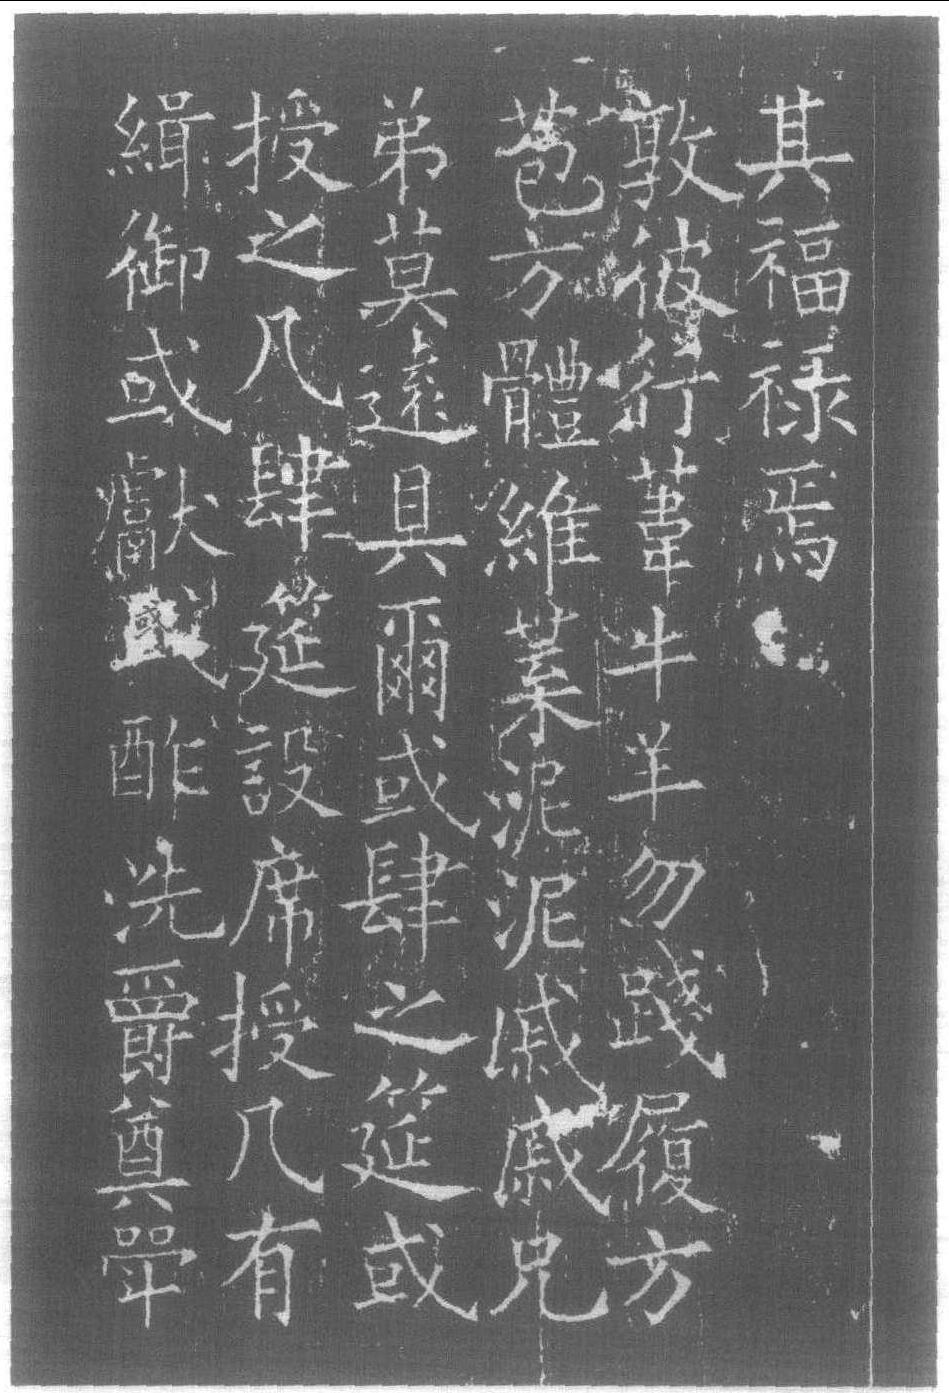 其福祿焉
敦彼行葦牛羊勿踐履方
苞方體維葉泥泥戚戚兄
弟莫遠具爾或肆之筵或
授之几肆筵設席授几有
緝御或獻或酢洗爵奠斝